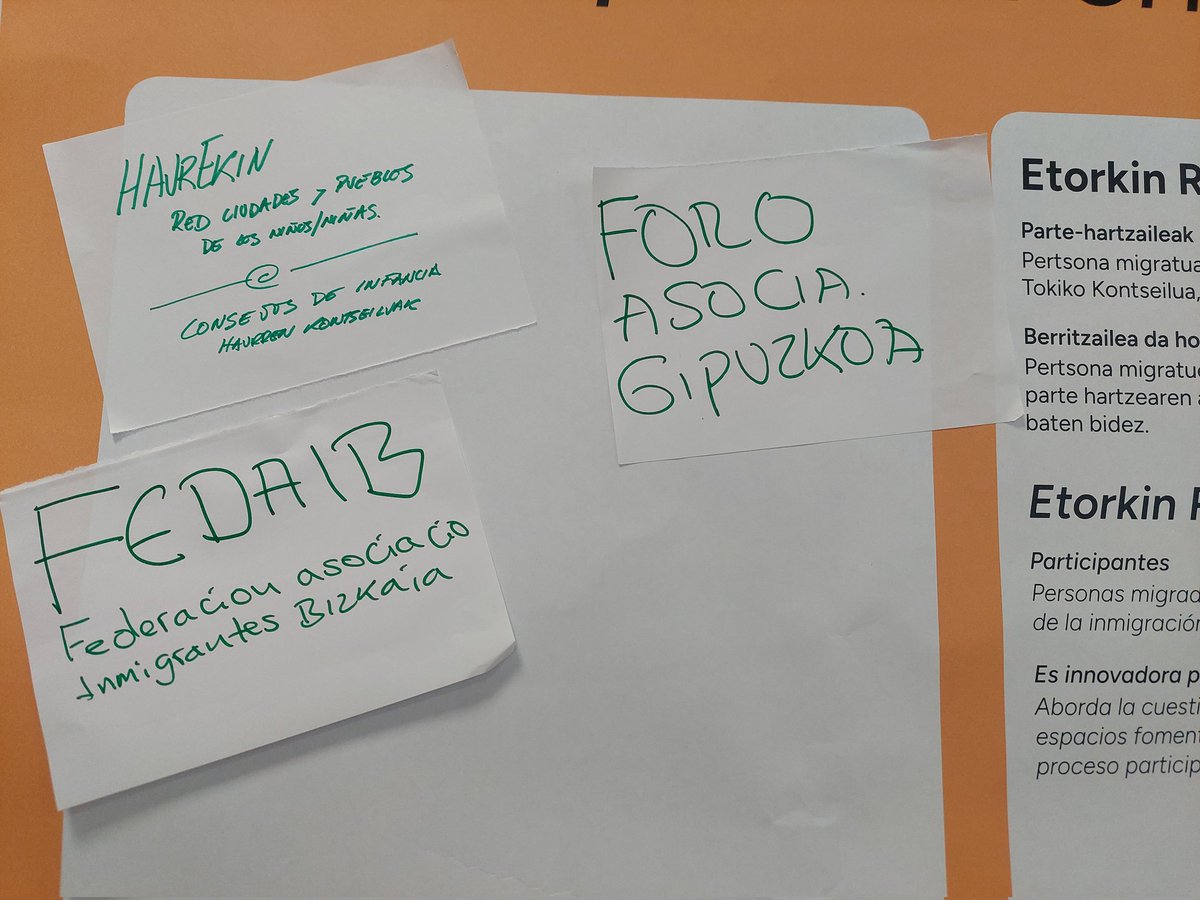 HAUREKIN
RED CIUDADES Y PUEBLOS
DE LOS NIÑOS/NIÑAS.
CONSEJOS DE INFANCIA
HAURREN KONTSEILUAK
FEDAIB
Federacion asociacio
Inmigrantes BIZKAIA
FORO
ASOCIA.
GIPUZKOA
Etorkin R
Parte-hartzaileak
Pertsona migratua
Tokiko Kontseilua,
Berritzailea da ho
Pertsona migratue
parte hartzearen a
baten bidez.
Etorkin
Participantes
Personas migrad
de la inmigración
Es innovadora p
Aborda la cuesti
espacios foment
proceso particip